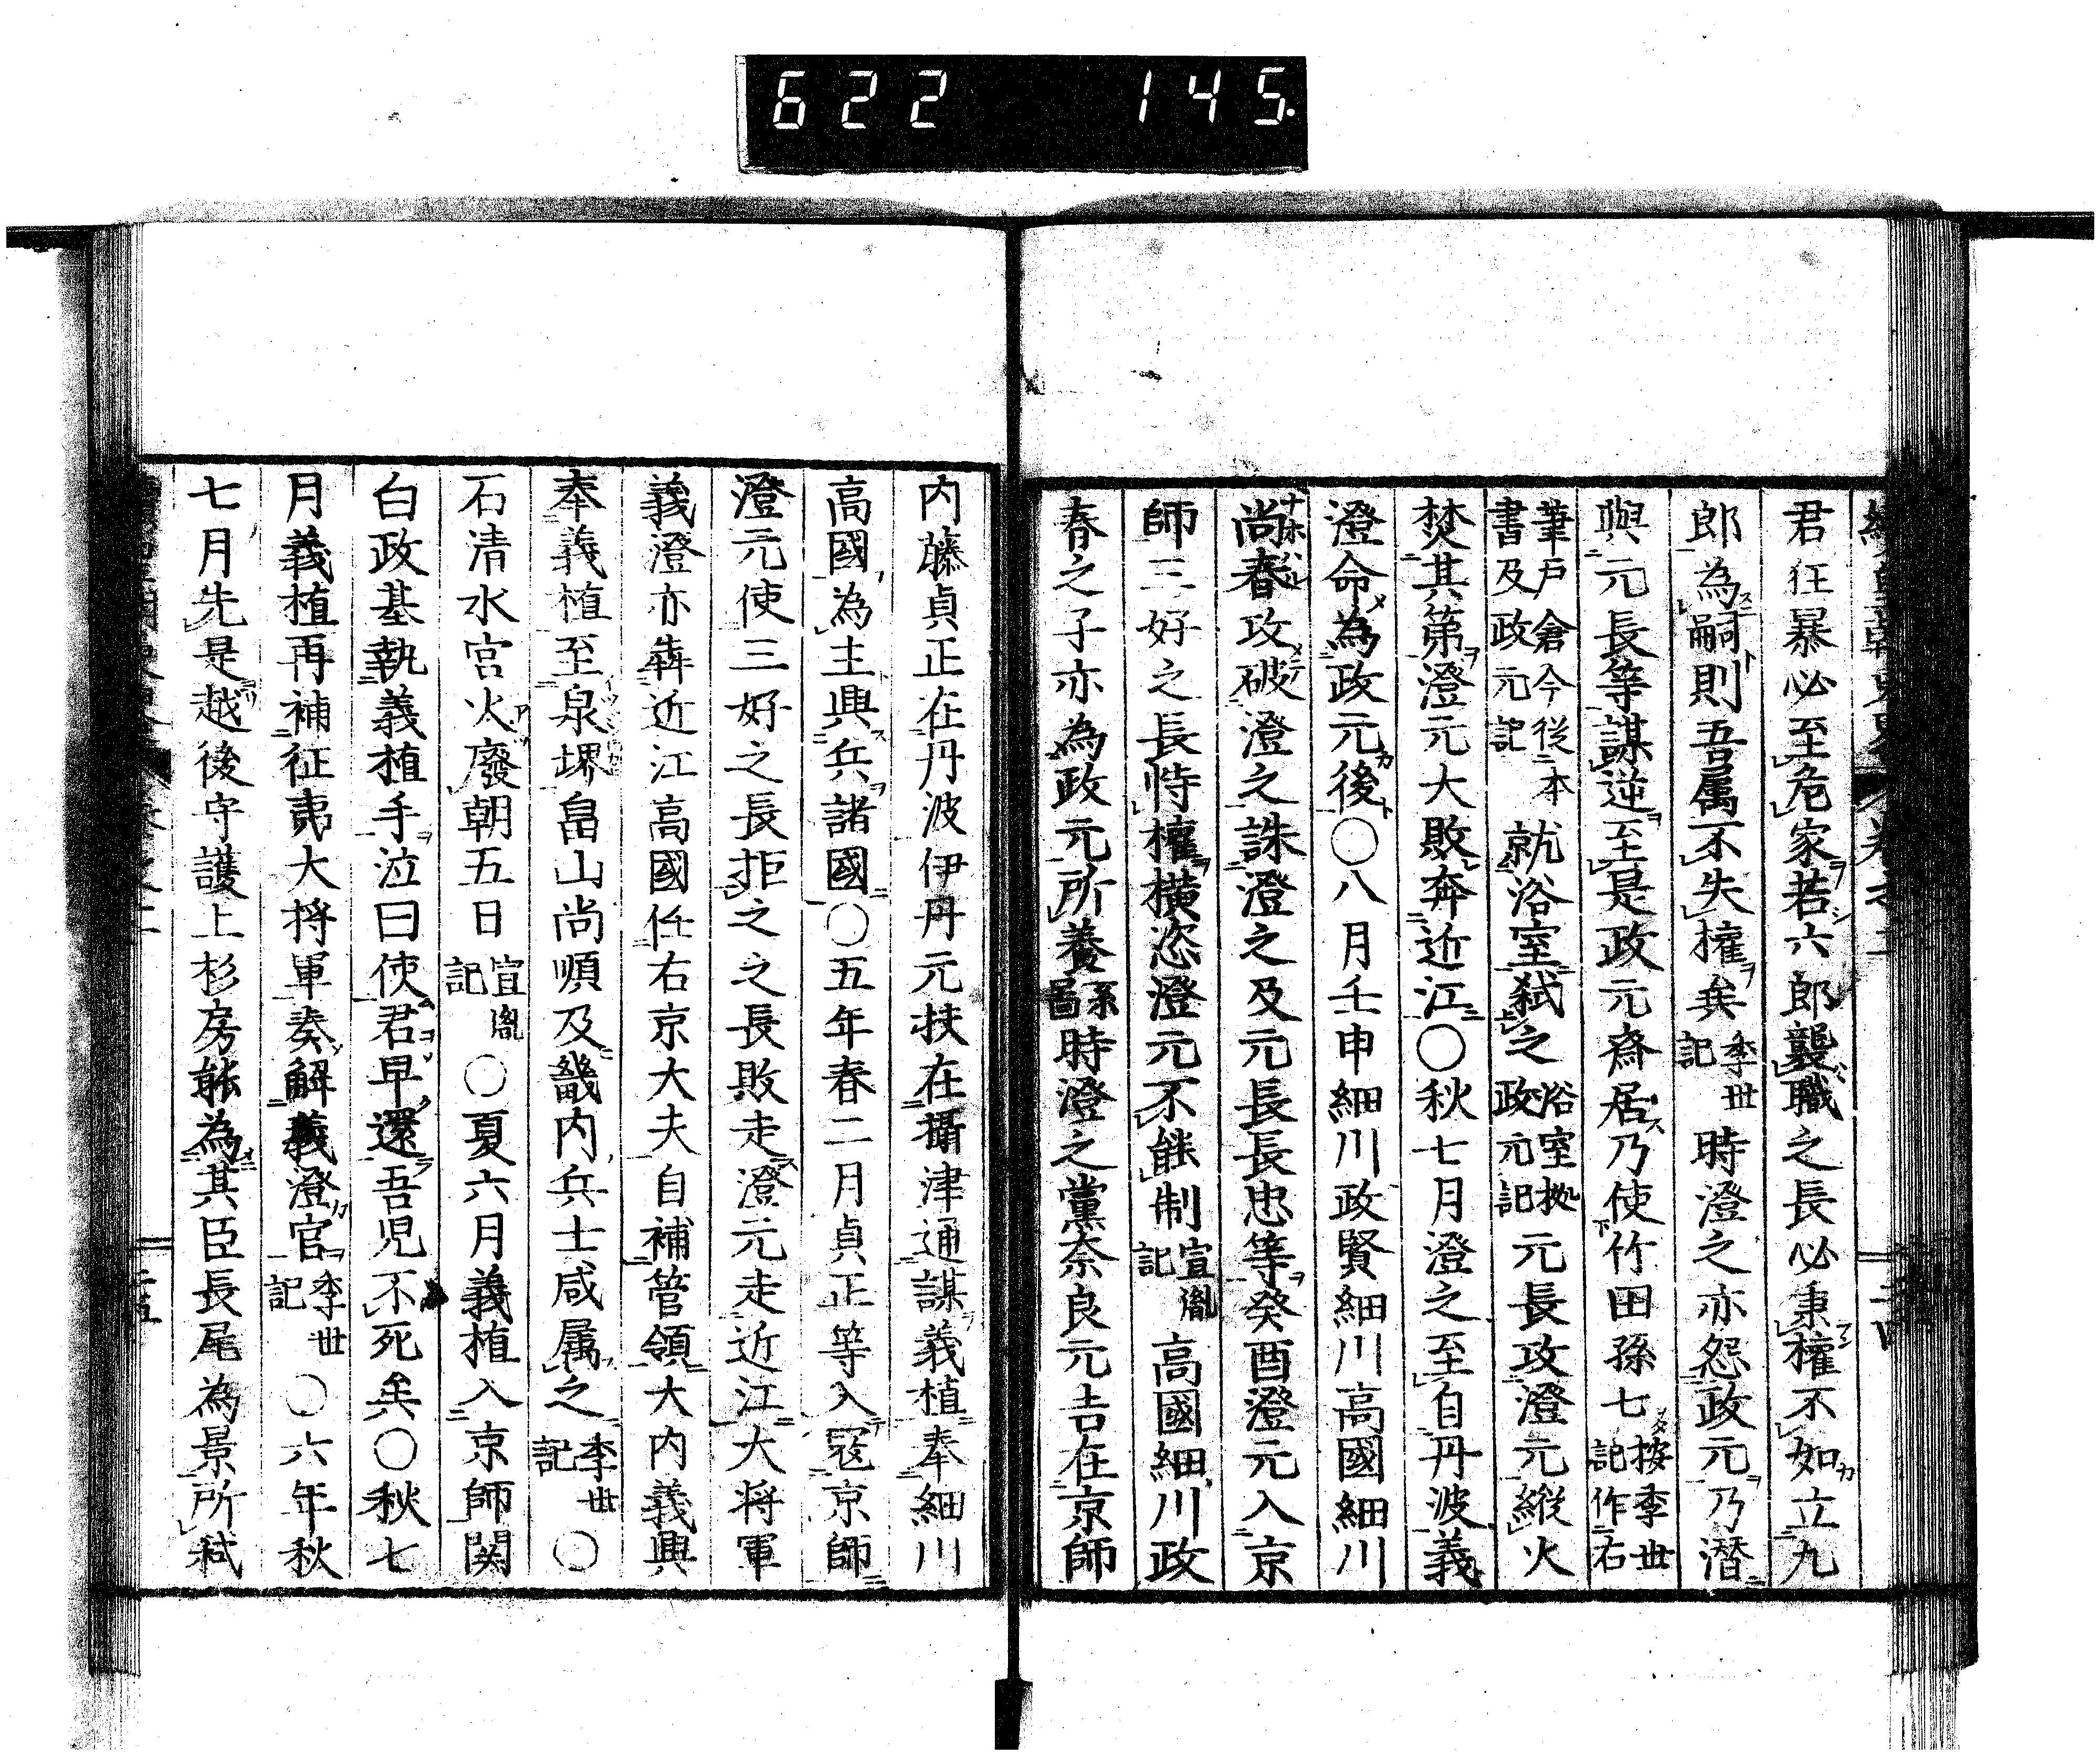 622 145.
君狂暴必至危家若六郎襲職之長必秉權不如立九
郎為嗣則吾属不失權矣季世記時澄之亦怨政元乃潜
與元長等謀逆至是政元齋居乃使竹田孫七按季世記作右
筆戸倉今從本書及政元記就浴室弑之浴室拠政元記元長攻澄元縱火
焚其第澄元大敗奔近江〇秋七月澄之至自丹波義
澄命為政元後〇八月壬申細川政賢細川高國細川
尚春攻破澄之誅澄之及元長長忠等癸酉澄元入京
師三好之長恃權横恣澄元不能制宣胤記高國細川政
春之子亦為政元所養系圖時澄之黨奈良元吉在京師
内藤貞正在丹波伊丹元扶在攝津通謀義植奉細川
高國為主興兵諸國〇五年春二月貞正等入寇京師
澄元使三好之長拒之之長敗走澄元走近江大将軍
義澄亦奔近江高國任右京大夫自補管領大内義興
奉義植至泉堺畠山尚順及畿内兵士咸属之季世記〇
石清水宮火廢朝五日宣胤記〇夏六月義植入京師関
白政基執義植手泣曰使君早還吾児不死矣〇秋七
月義植再補征夷大将軍奏解義澄官季世記〇六年秋
七月先是越後守護上杉房能為其臣長尾為景所弑